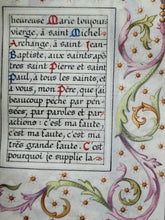 heureuse Marie toujours
vierge, à saint Michel
Archange, à saint Jean-
Baptiste, aux saints apô-
tres saint Pierre et saint
Paul, à tous les saints, et à
vous, mon Père, que j'ai
beaucoup péché par pen-
sées, par paroles et par
actions : c'est ma faute,
c'est ma faute, c'est ma
très grande faute. C'est
pourquoi je supplie la